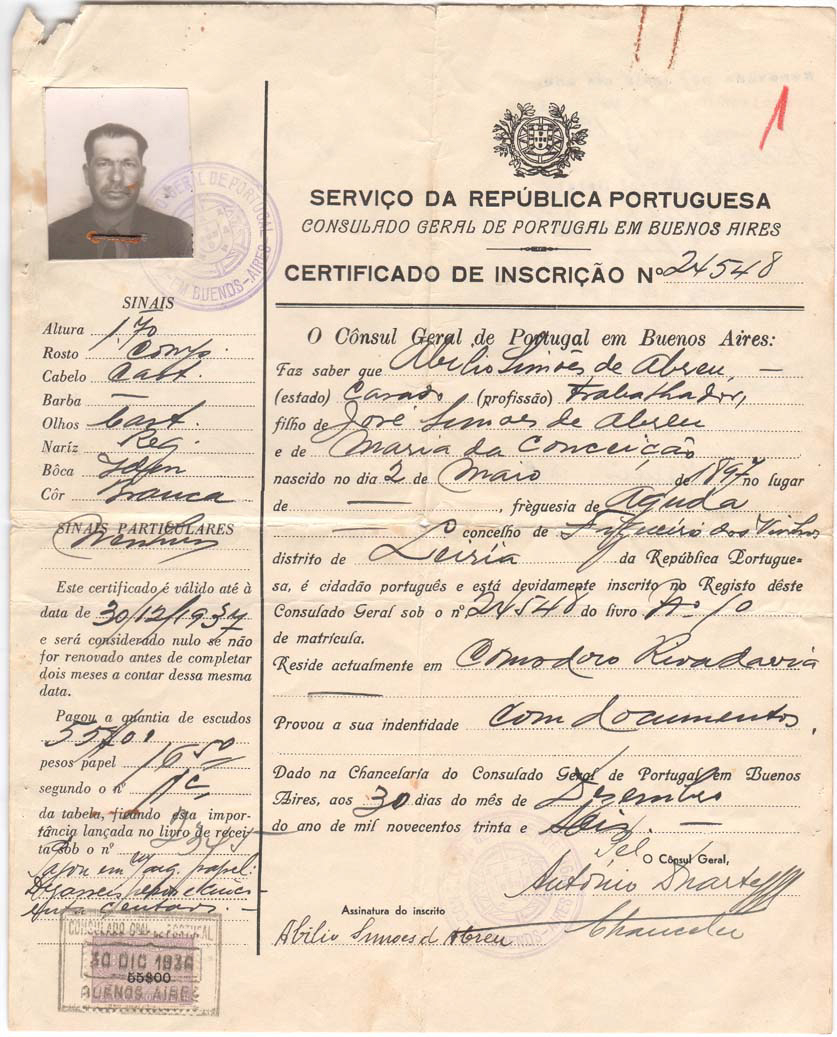 1
SERVIÇO DA REPÚBLICA PORTUGUESA
CONSULADO GERAL DE PORTUGAL EM BUENOS AIRES
CERTIFICADO DE INSCRIÇÃO Nº 24548
GERAL DE PORTUGAL
EM BUENOS-AIRES
SINAIS
Altura 1.70
Rosto Comp.
Cabelo Cast.
Barba —
Olhos Cast.
Naríz Reg.
Bôca Idem
Côr Branca
SINAIS PARTICULARES
Este certificado é válido até à
data de 30/12/1937
e será considerado nulo se não
for renovado antes de completar
dois meses a contar dessa mesma
data.
Pagou a quantia de escudos
55$00
pesos papel 16.50
segundo o nº
da tabela, ficando esta impor-
tância lançada no livro de recei-
ta sob o nº
Pagou em papel:
centavos. —
CONSULADO GRAL DE PORTUGAL
30 DIC 1936
55$00
BUENOS AIRES
O Cônsul Geral de Portugal em Buenos Aires:
Faz saber que Abilio Simões de Abreu, —
(estado) Casado (profissão) Trabalhador,
filho de José Simoes de Abreu
e de Maria da Conceição
nascido no dia 2 de Maio de 1897 no lugar
de — , frèguesia de Aguda
concelho de Figueiró dos Vinhos
distrito de Leiria da República Portugue-
sa, é cidadão português e está devidamente inscrito no Registo dêste
Consulado Geral sob o nº 24548 do livro Nº 10
de matrícula.
Reside actualmente em Comodoro Rivadavia
—
Provou a sua indentidade com documentos.
Dado na Chancelaria do Consulado Geral de Portugal em Buenos
Aires, aos 30 dias do mês de Dezembro
do ano de mil novecentos trinta e seis. —
Pel
O Cônsul Geral,
António Duarte
Chanceler
Assinatura do inscrito
Abilio Simoes d Abreu